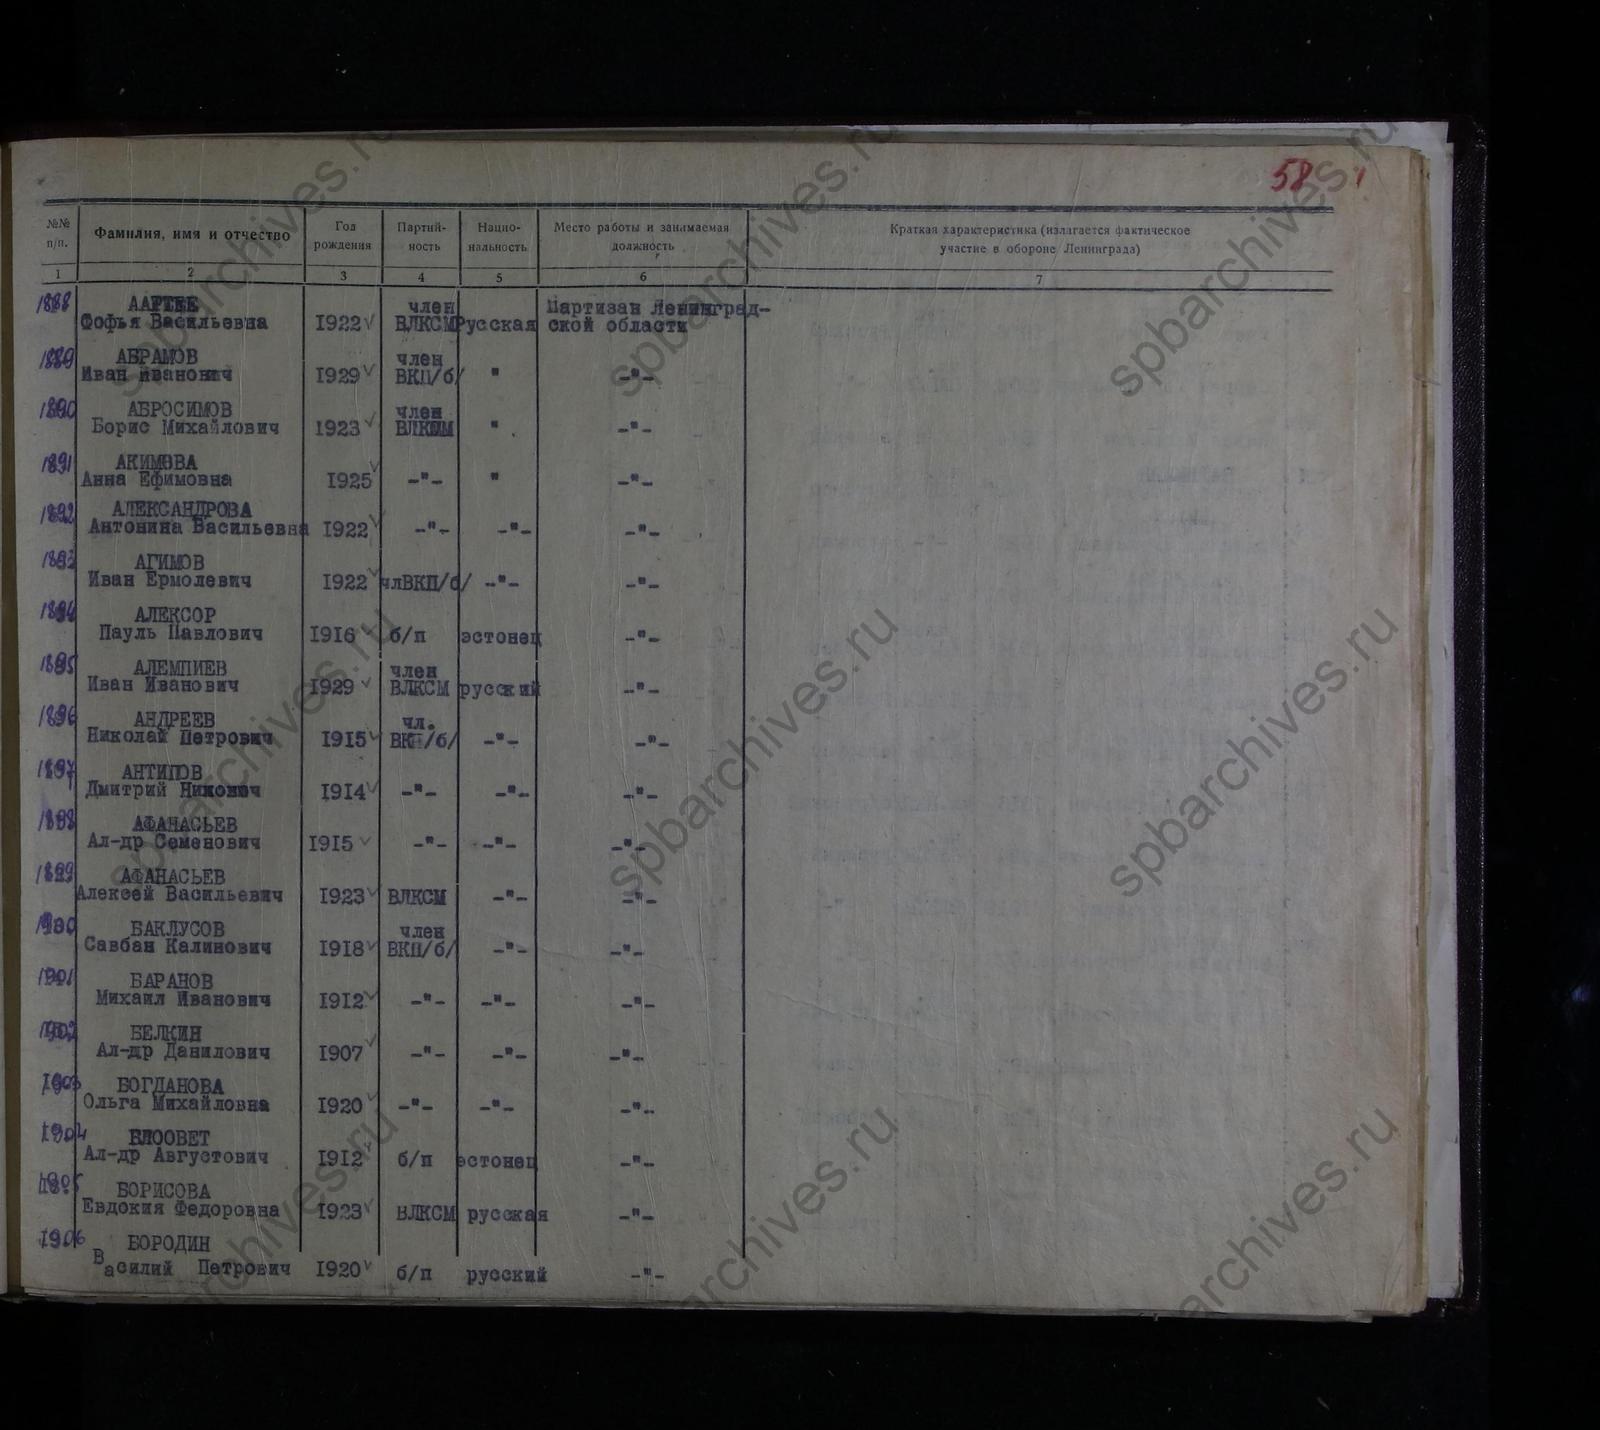 58
№№ п/п. Фамилия, имя и отчество Год рождения Партий-ность Нацио-нальность Место работы и занимаемая должность Краткая характеристика (излагается фактическое участие в обороне Ленинграда)
1 2 3 4 5 6 7
1888 ААРТЕЕ член Партизан Ленинград-
Софья Васильевна 1922 ВЛКСМ Русская ской области
1889 АБРАМОВ член
Иван Иванович 1929 ВКП/б/ " -"-
1890 АБРОСИМОВ член
Борис Михайлович 1923 ВЛКСМ " -"-
1891 АКИМОВА
Анна Ефимовна 1925 -"- " -"-
1892 АЛЕКСАНДРОВА
Антонина Васильевна 1922 -"- -"- -"-
1893 АГИМОВ
Иван Ермолевич 1922 члВКП/б/ -"- -"-
1894 АЛЕКСОР
Пауль Павлович 1916 б/п эстонец -"-
1895 АЛЕМПИЕВ член
Иван Иванович 1929 ВЛКСМ русский -"-
1896 АНДРЕЕВ чл.
Николай Петрович 1915 ВКП/б/ -"- -"-
1897 АНТИПОВ
Дмитрий 1914 -"- -"- -"-
1898 АФАНАСЬЕВ
Ал-др Семенович 1915 -"- -"- -"-
1899 АФАНАСЬЕВ
Алексей Васильевич 1923 ВЛКСМ -"- -"-
1900 БАКЛУСОВ член
Савбан Калинович 1918 ВКП/б/ -"- -"-
1901 БАРАНОВ
Михаил Иванович 1912 -"- -"- -"-
1902 БЕЛКИН
Ал-др Данилович 1907 -"- -"- -"-
1903 БОГДАНОВА
Ольга Михайловна 1920 -"- -"- -"-
1904
Ал-др Августович 1912 б/п эстонец -"-
1905 БОРИСОВА
Евдокия Федоровна 1923 ВЛКСМ русская -"-
1906 БОРОДИН
Василий Петрович 1920 б/п русский -"-
spbarchives.ru